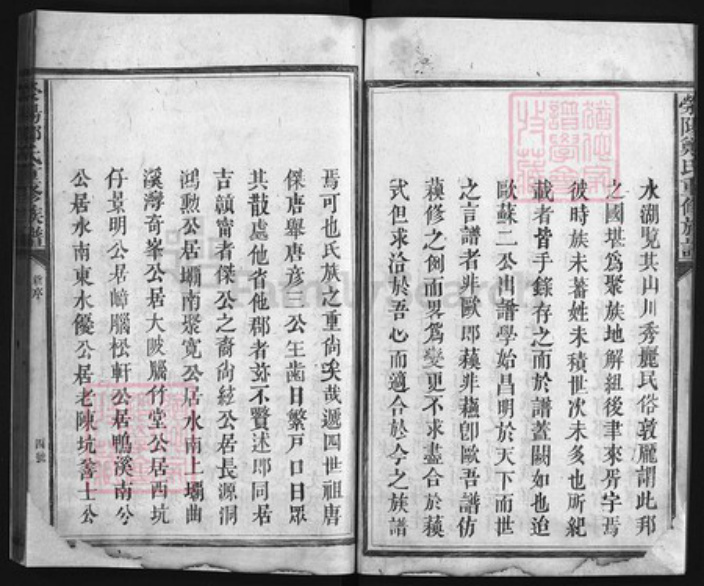 滎陽鄭氏重修族譜
水湖覽其山川秀麗民俗敦龐謂此邦
之國堪爲聚族地解組後聿來胥宇焉
彼時族未蕃姓未積世次未多也所紀
載者皆手錄存之而於譜蓋闕如也迨
歐蘇二公出譜學始昌明於天下而世
之言譜者非歐卽蘇非蘇卽歐吾譜仿
蘇修之例而畧爲變更不求盡合於蘇
式但求洽於吾心而適合於今之族譜
焉可也氏族之重尙矣哉遞四世祖唐
傑唐舉唐彥三公生齒日繁戸口日眾
其散處他省他郡者茲不贅述卽同居
吉贛甯者傑公之裔尙紘公居長源洞
鴻勲公居壩南聚寬公居水南上壩曲
溪灣奇峯公居大陂屬竹堂公居西坑
仔景明公居嶂腦松軒公居鴨溪南公
公居水南東水優公居老陳坑善士公
滎陽鄭氏重修族譜
新序
四號